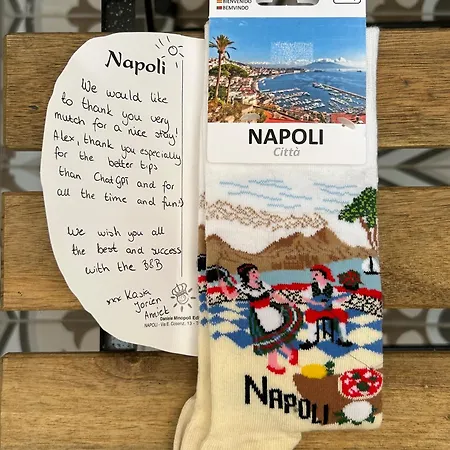 BIENVENIDO
BEMVINDO
NAPOLI
Città
Napoli
We would like
to thank you very
mutch for a nice stay!
Alex, thank you especially
for the better tips
than ChatGPT and for
all the time and fun:)
We wish you all
the best and success
with the B&B
xxx Kasia
Jorien
Daniele Minopoli Edi
NAPOLI - Via E. Cosenz, 13 - T
NAPOLI